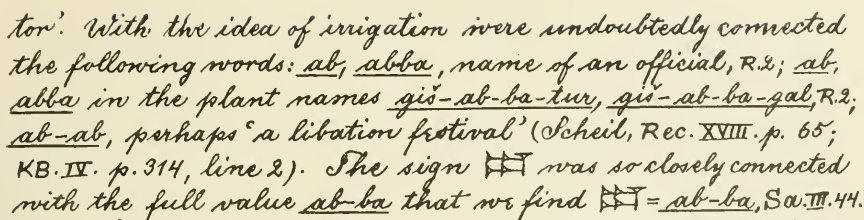 tor'. With the idea of irrigation were undoubtedly connected
the following words: ab, abba, name of an official, R.2; ab,
abba in the plant names giš-ab-ba-tur, giš-ab-ba-gal, R.2;
ab-ab, perhaps 'a libation festival' (Scheil, Rec. XVIII. p. 65;
KB. IV. p. 314, line 2). The sign was so closely connected
with the full value ab-ba that we find = ab-ba, Sa. III. 44.